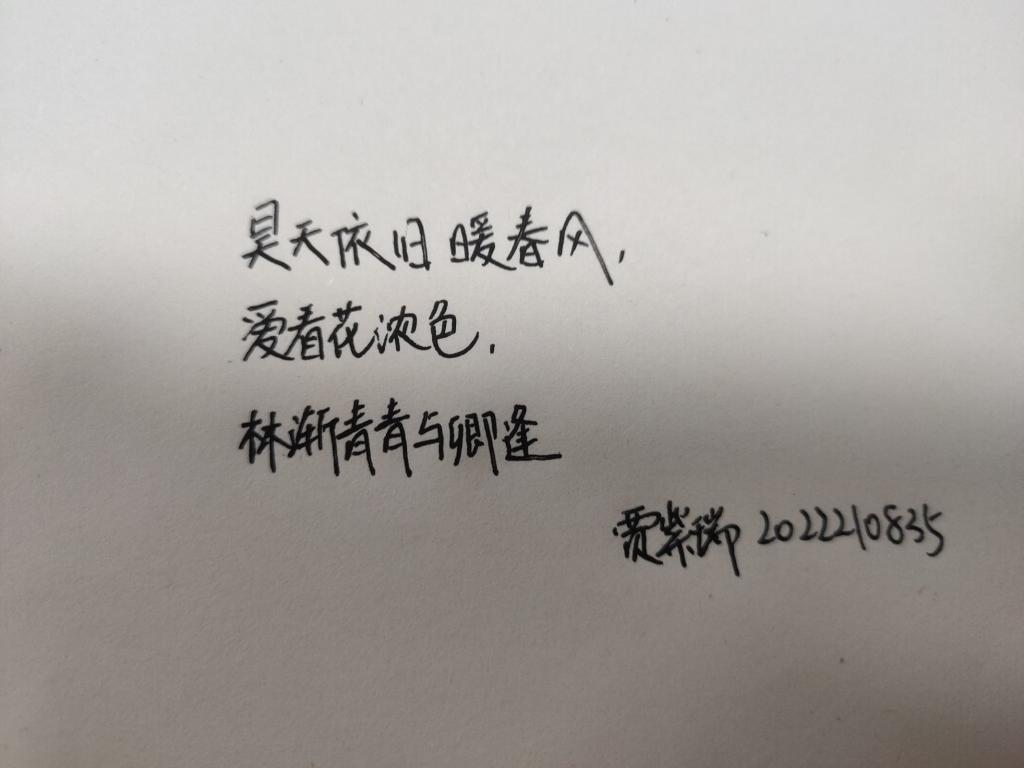 昊天依旧暖春风,
爱看花浓色.
林渐青青与卿逢
贾紫瑞 2022210835